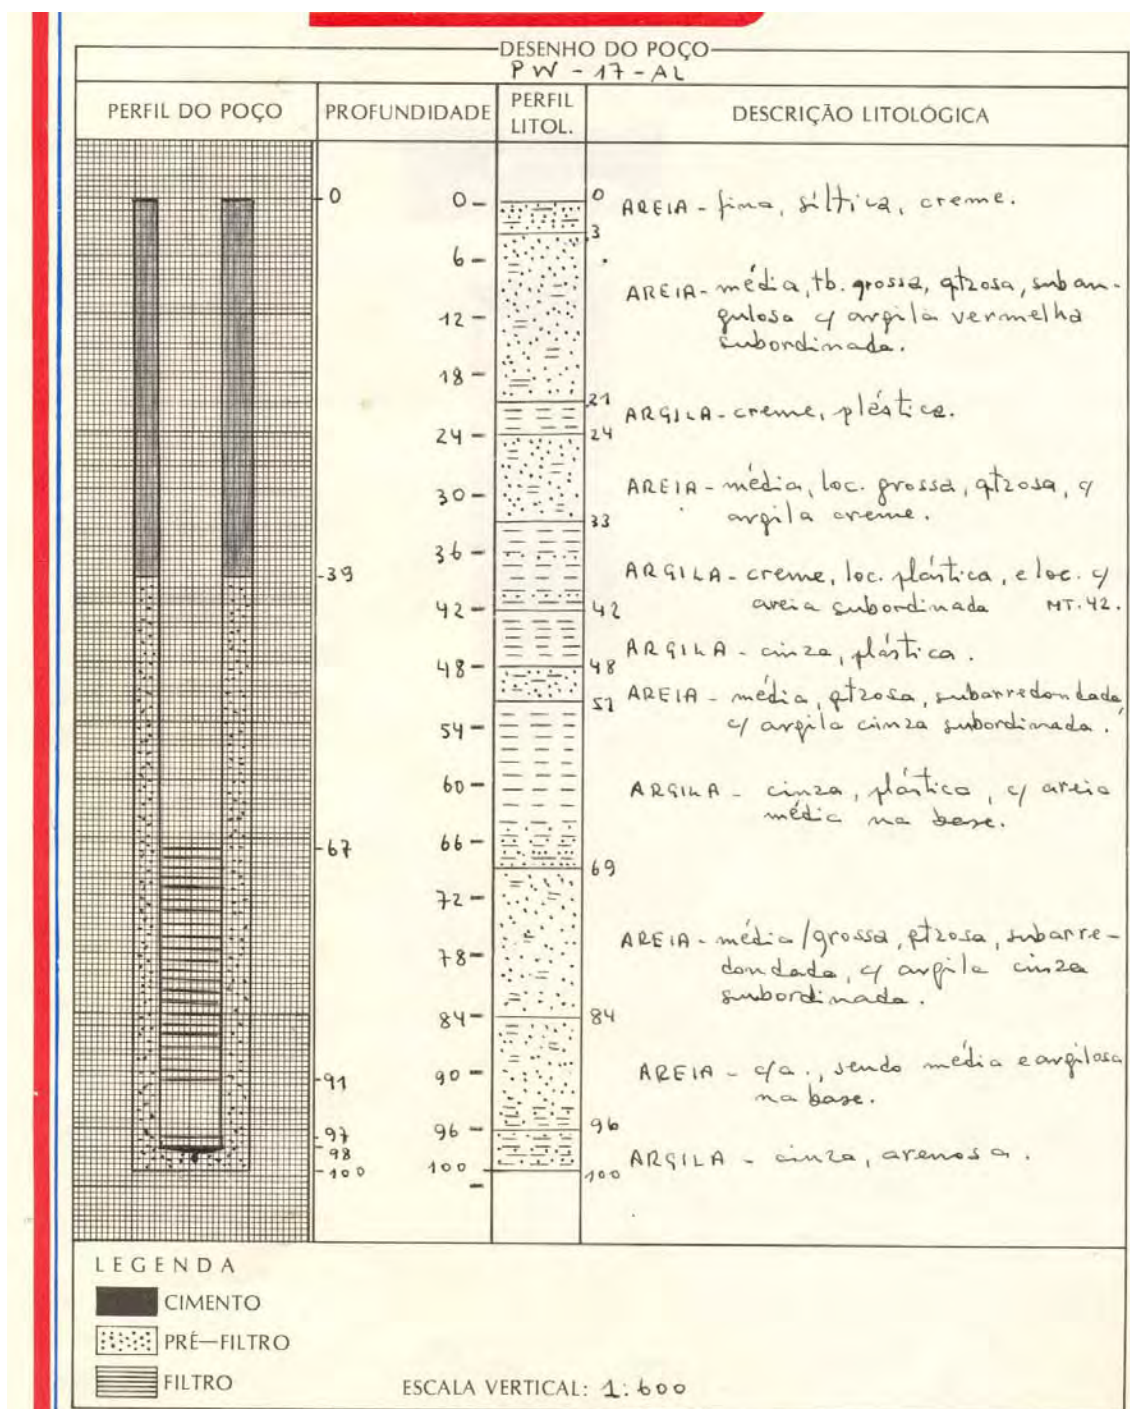 DESENHO DO POÇO
PW - 17 - AL
PERFIL DO POÇO
PROFUNDIDADE
PERFIL
LITOL.
DESCRIÇÃO LITOLÓGICA
0
39
67
91
97
98
100
0
6
12
18
24
30
36
42
48
54
60
66
72
78
84
90
96
100
0
3
21
24
33
42
48
51
69
84
96
100
AREIA - fina, síltica, creme.
AREIA - média, tb. grossa, qtzosa, suban-
gulosa c/ argila vermelha
subordinada.
ARGILA - creme, plástica.
AREIA - média, loc. grossa, qtzosa, c/
argila creme.
ARGILA - creme, loc. plástica, e loc. c/
areia subordinada MT. 42.
ARGILA - cinza, plástica.
AREIA - média, qtzosa, subarredondada,
c/ argila cinza subordinada.
ARGILA - cinza, plástica, c/ areia
média na base.
AREIA - média/grossa, qtzosa, subarre-
dondada, c/ argila cinza
subordinada.
AREIA - c/a., sendo média e argilosa
na base.
ARGILA - cinza, arenosa.
LEGENDA
CIMENTO
PRÉ-FILTRO
FILTRO
ESCALA VERTICAL: 1:600